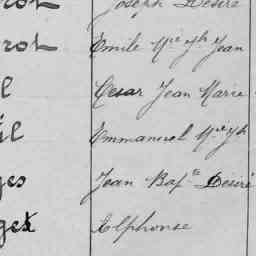 rot Joseph Désiré
rot Emile Mie Jh Jean
l César Jean Marie
il Emmanuel Mie Jh
ges Jean Bapte Désiré
get Alphonse